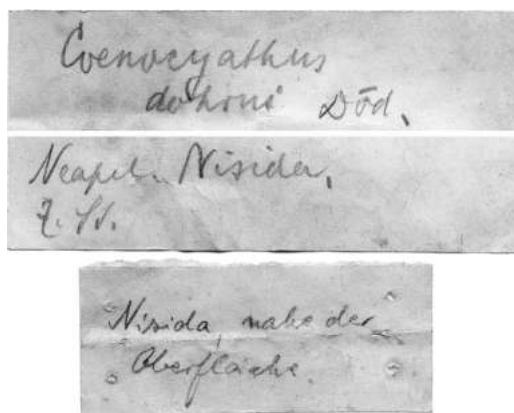 Coenocyathus
dohrni Död.
Neapel. Nisida.
Z. St.
Nisida, nahe der
Oberfläche.